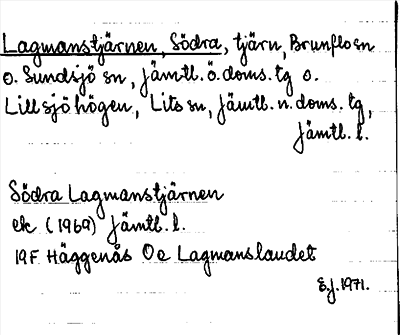 Lagmanstjärnen, Södra, tjärn, Brunflo sn
o. Sundsjö sn, Jämtl. ö. doms. tg o.
Lillsjöhögen, Lits sn, Jämtl. n. doms. tg,
Jämtl. l.
Södra Lagmanstjärnen
ek (1969) Jämtl. l.
19F Häggenås 0e Lagmanslandet
E.J. 1971.